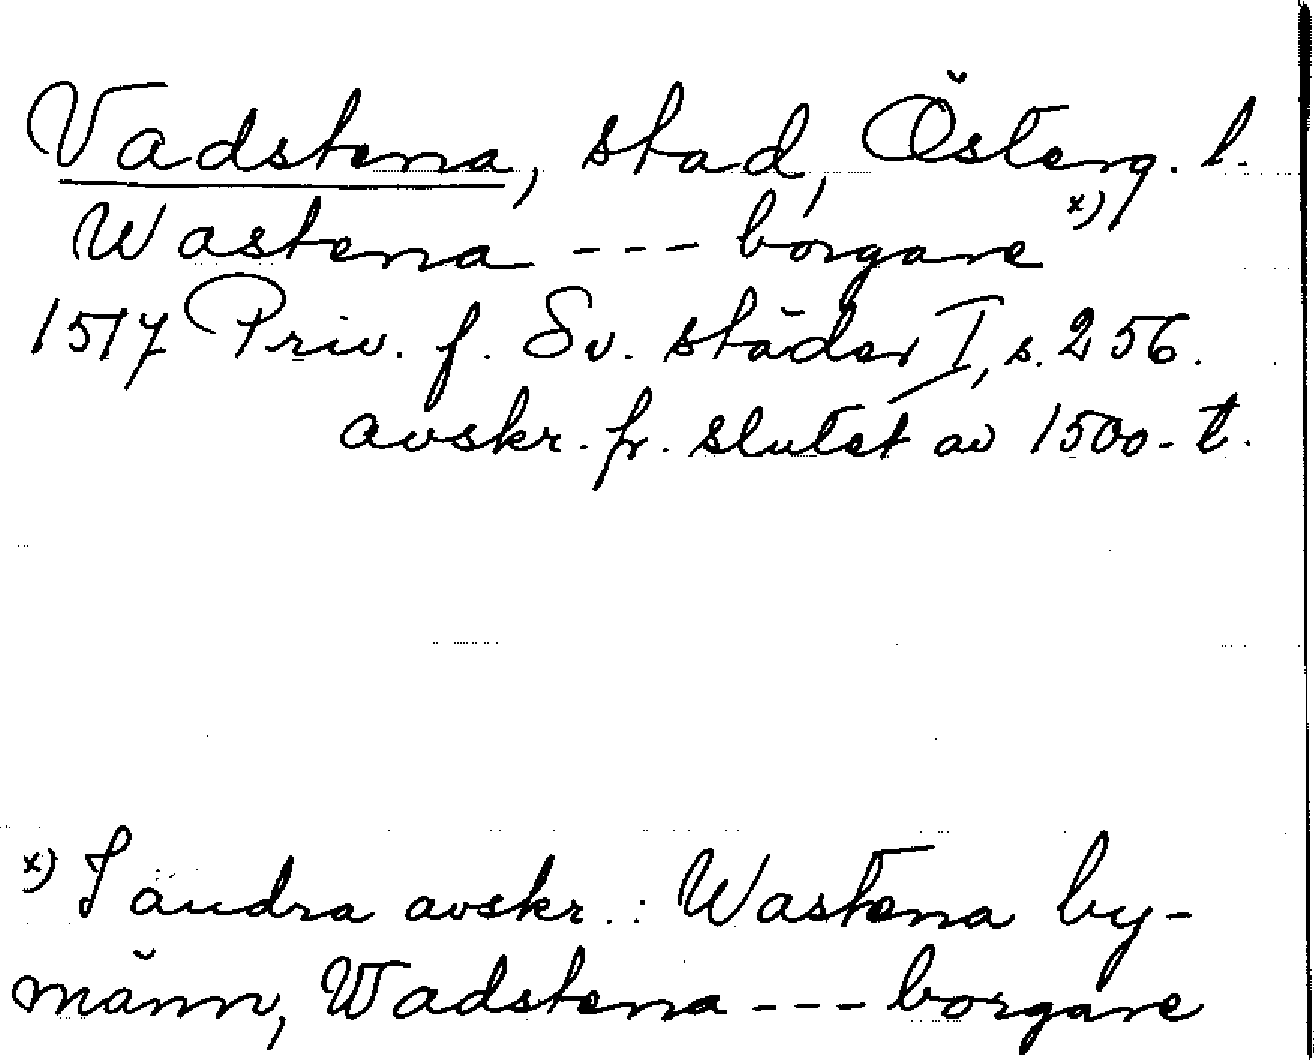 Vadstena, stad, Österg. l.
Wastena --- borgare x)
1517 Priv. f. Sv. städer I, s. 256.
avskr. fr. slutet av 1500-t.
x) I andra avskr.: Wastena by-
männ, Wadstena --- borgare